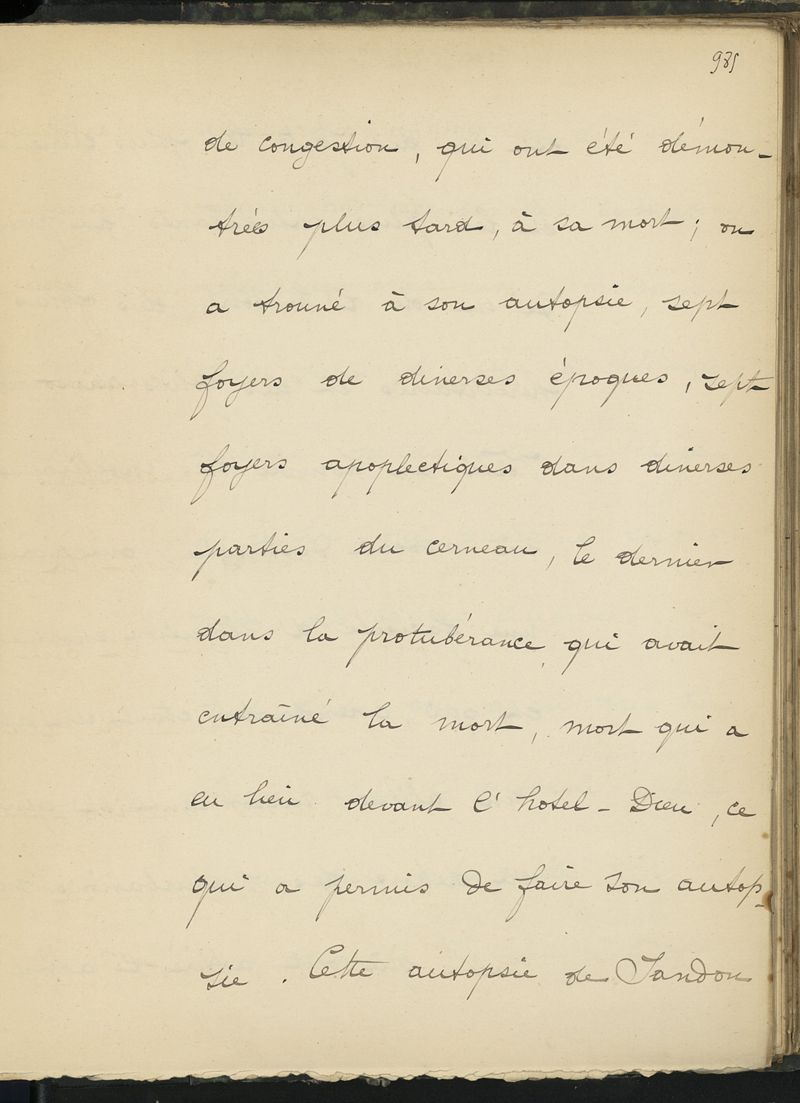 985
de congestion, qui ont été démon-
trées plus tard, à sa mort; on
a trouvé à son autopsie, sept
foyers de diverses époques, sept
foyers apoplectiques dans diverses
parties du cerveau, le dernier
dans la protubérance, qui avait
entraîné la mort, mort qui a
eu lieu devant l'hotel-Dieu, ce
qui a permis de faire son autop-
sie. Cette autopsie de Sandon